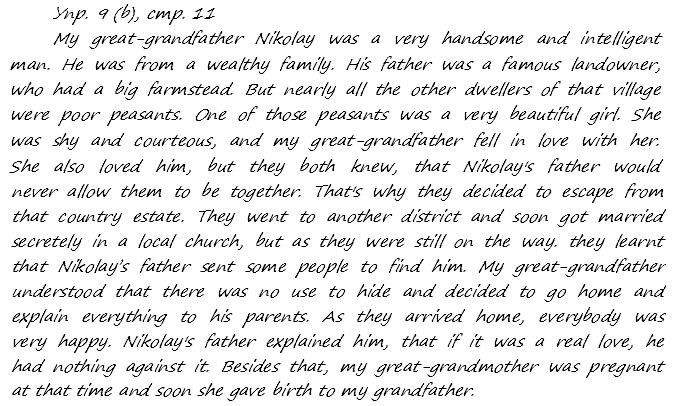 Упр. 9 (b), стр. 11
My great-grandfather Nikolay was a very handsome and intelligent
man. He was from a wealthy family. His father was a famous landowner,
who had a big farmstead. But nearly all the other dwellers of that village
were poor peasants. One of those peasants was a very beautiful girl. She
was shy and courteous, and my great-grandfather fell in love with her.
She also loved him, but they both knew, that Nikolay's father would
never allow them to be together. That's why they decided to escape from
that country estate. They went to another district and soon got married
secretely in a local church, but as they were still on the way. they learnt
that Nikolay's father sent some people to find him. My great-grandfather
understood that there was no use to hide and decided to go home and
explain everything to his parents. As they arrived home, everybody was
very happy. Nikolay's father explained him, that if it was a real love, he
had nothing against it. Besides that, my great-grandmother was pregnant
at that time and soon she gave birth to my grandfather.